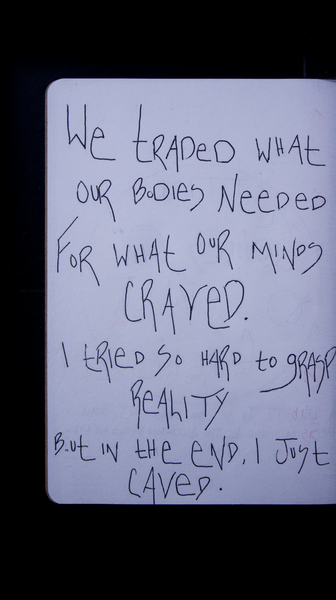 We tRADeD wHAt
OUR BODIES NeeDeD
FOR WHAt OUR MINDS
CRAVeD.
I tRIeD SO HARD to gRASP
ReALITY
BUt IN tHe eND, I JUSt
CAVeD.